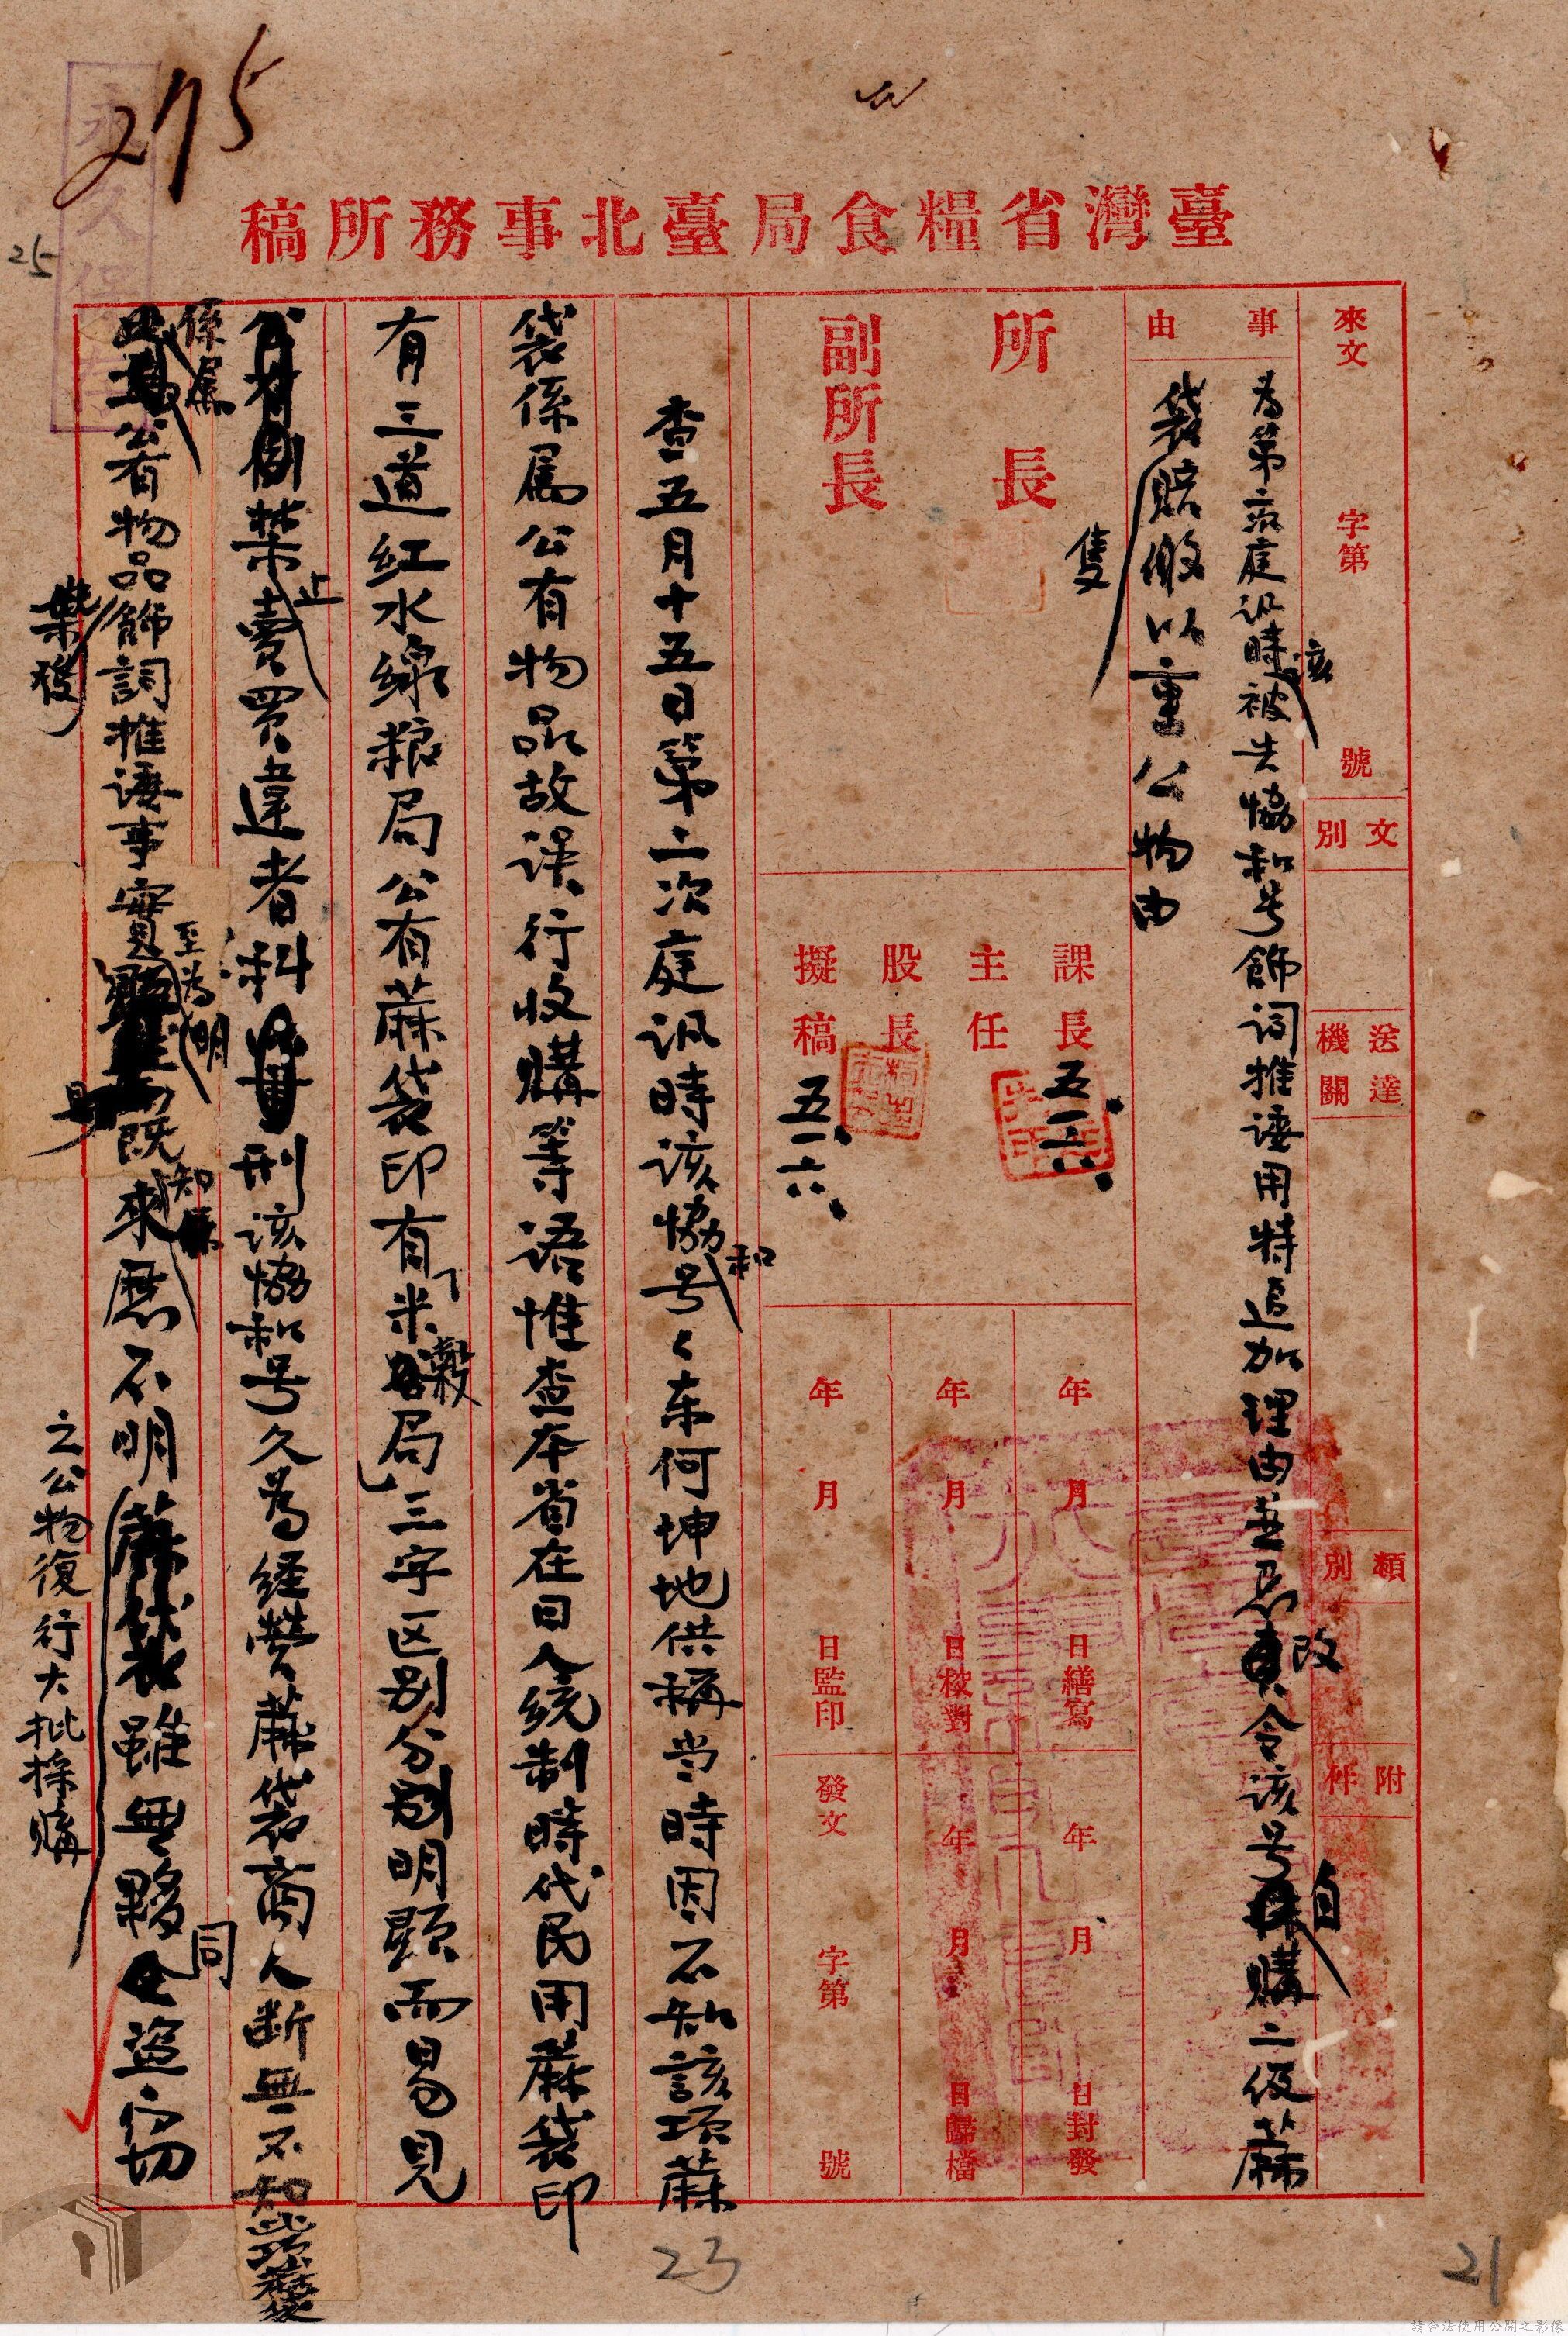 275
永久保存
25
臺灣省糧食局臺北事務所稿
來文 字第 號
文別
送達機關
類別
附件
事由
為第二次庭訊時該被告協和号飾詞推諉用特追加理由並懇改令該号自購二級蔴
袋賠償以重公物由
隻
所長
副所長
課長 五、一六、
主任
股長
擬稿 五、一六、
年 月 日繕寫
年 月 日校對
年 月 日監印
年 月 日封發
年 月 日歸檔
發文 字第 號
查五月十五日第二次庭訊時該協和号々东何坤地供稱当時因不知該项蔴
袋係属公有物品故误行收購等语惟查本省在日人統制時代民用蔴袋印
有三道红水線粮局公有蔴袋印有「米穀局」三字区别分别明顕而易見
禁止賣買違者科刑该協和号久為経营蔴袋商人断無不知此项蔴袋
係属公有物品飾詞推诿事實至為明
既知來歷不明之公物復行大批採購
雖無夥同盜窃
23
21
請合法使用公開之影像